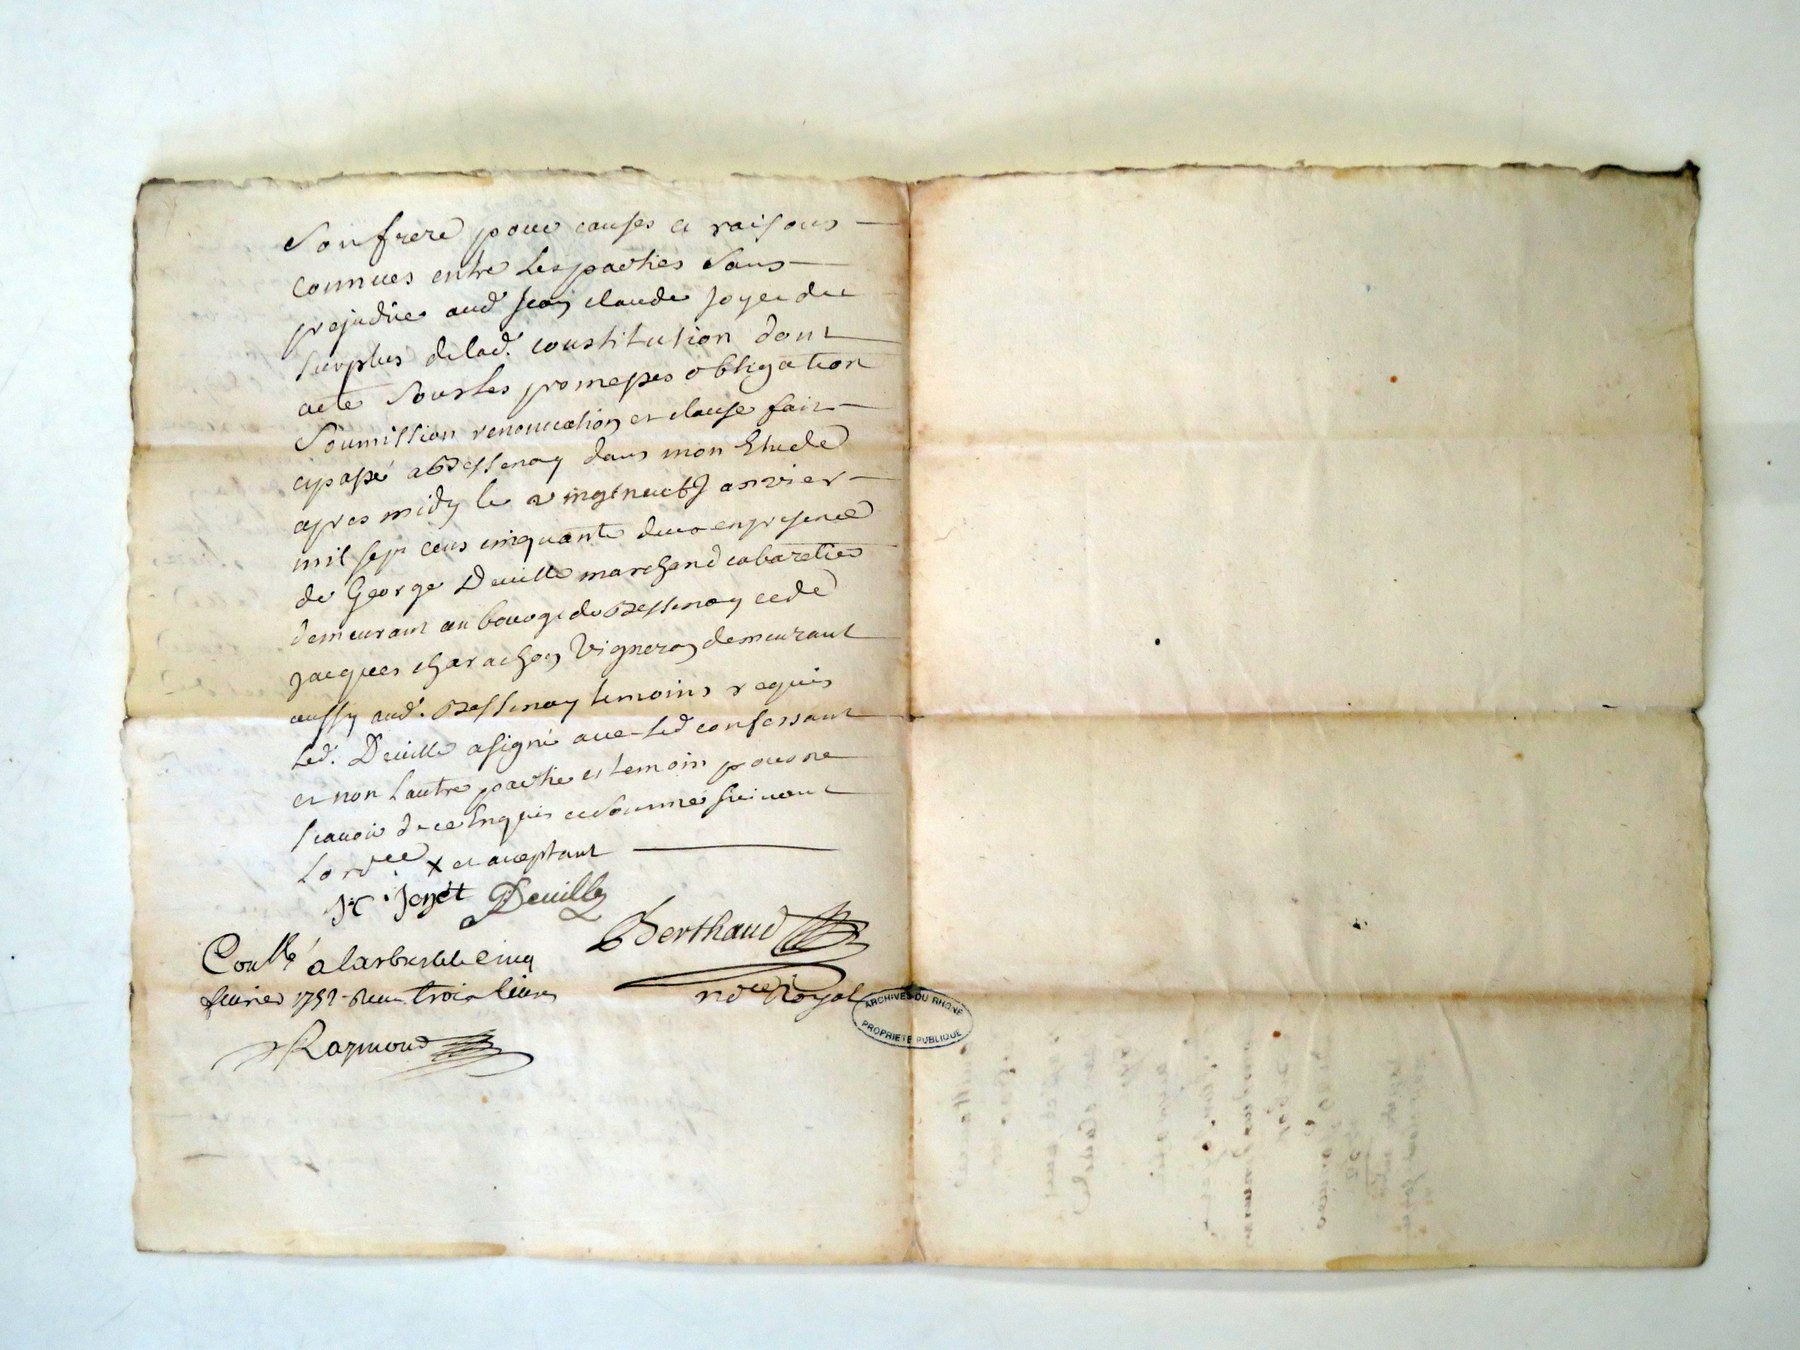 Son frere pour causes et raisons
connues entre les parties Sans
prejudice aud. Jean claude Joyet du
surplus de lad. constitution dont
acte Sous les promesses obligation
Soumission renonciation et clause fait
et passé a Bessenay dans mon Etude
apres midy le vingt neuf Janvier
mil sept cens cinquante deux en presence
de George Deville marchand cabaretier
demeurant au bourg de Bessenay et de
Jacques charachon Vigneron demeurant
aussy aud. Bessenay temoins requis
Led. Deville a signé avec led confessant
et non lautre partie et temoin pour ne
scavoir de ce Enquis et Sommé suivant
Lord.ce x et aceptant
Jc Joyet Deville
Berthaud
n.re Royal
Con.llé a larbresle le cinq
fevrier 1752 Reçu trois livres
Raymond
ARCHIVES DU RHONE
PROPRIETE PUBLIQUE